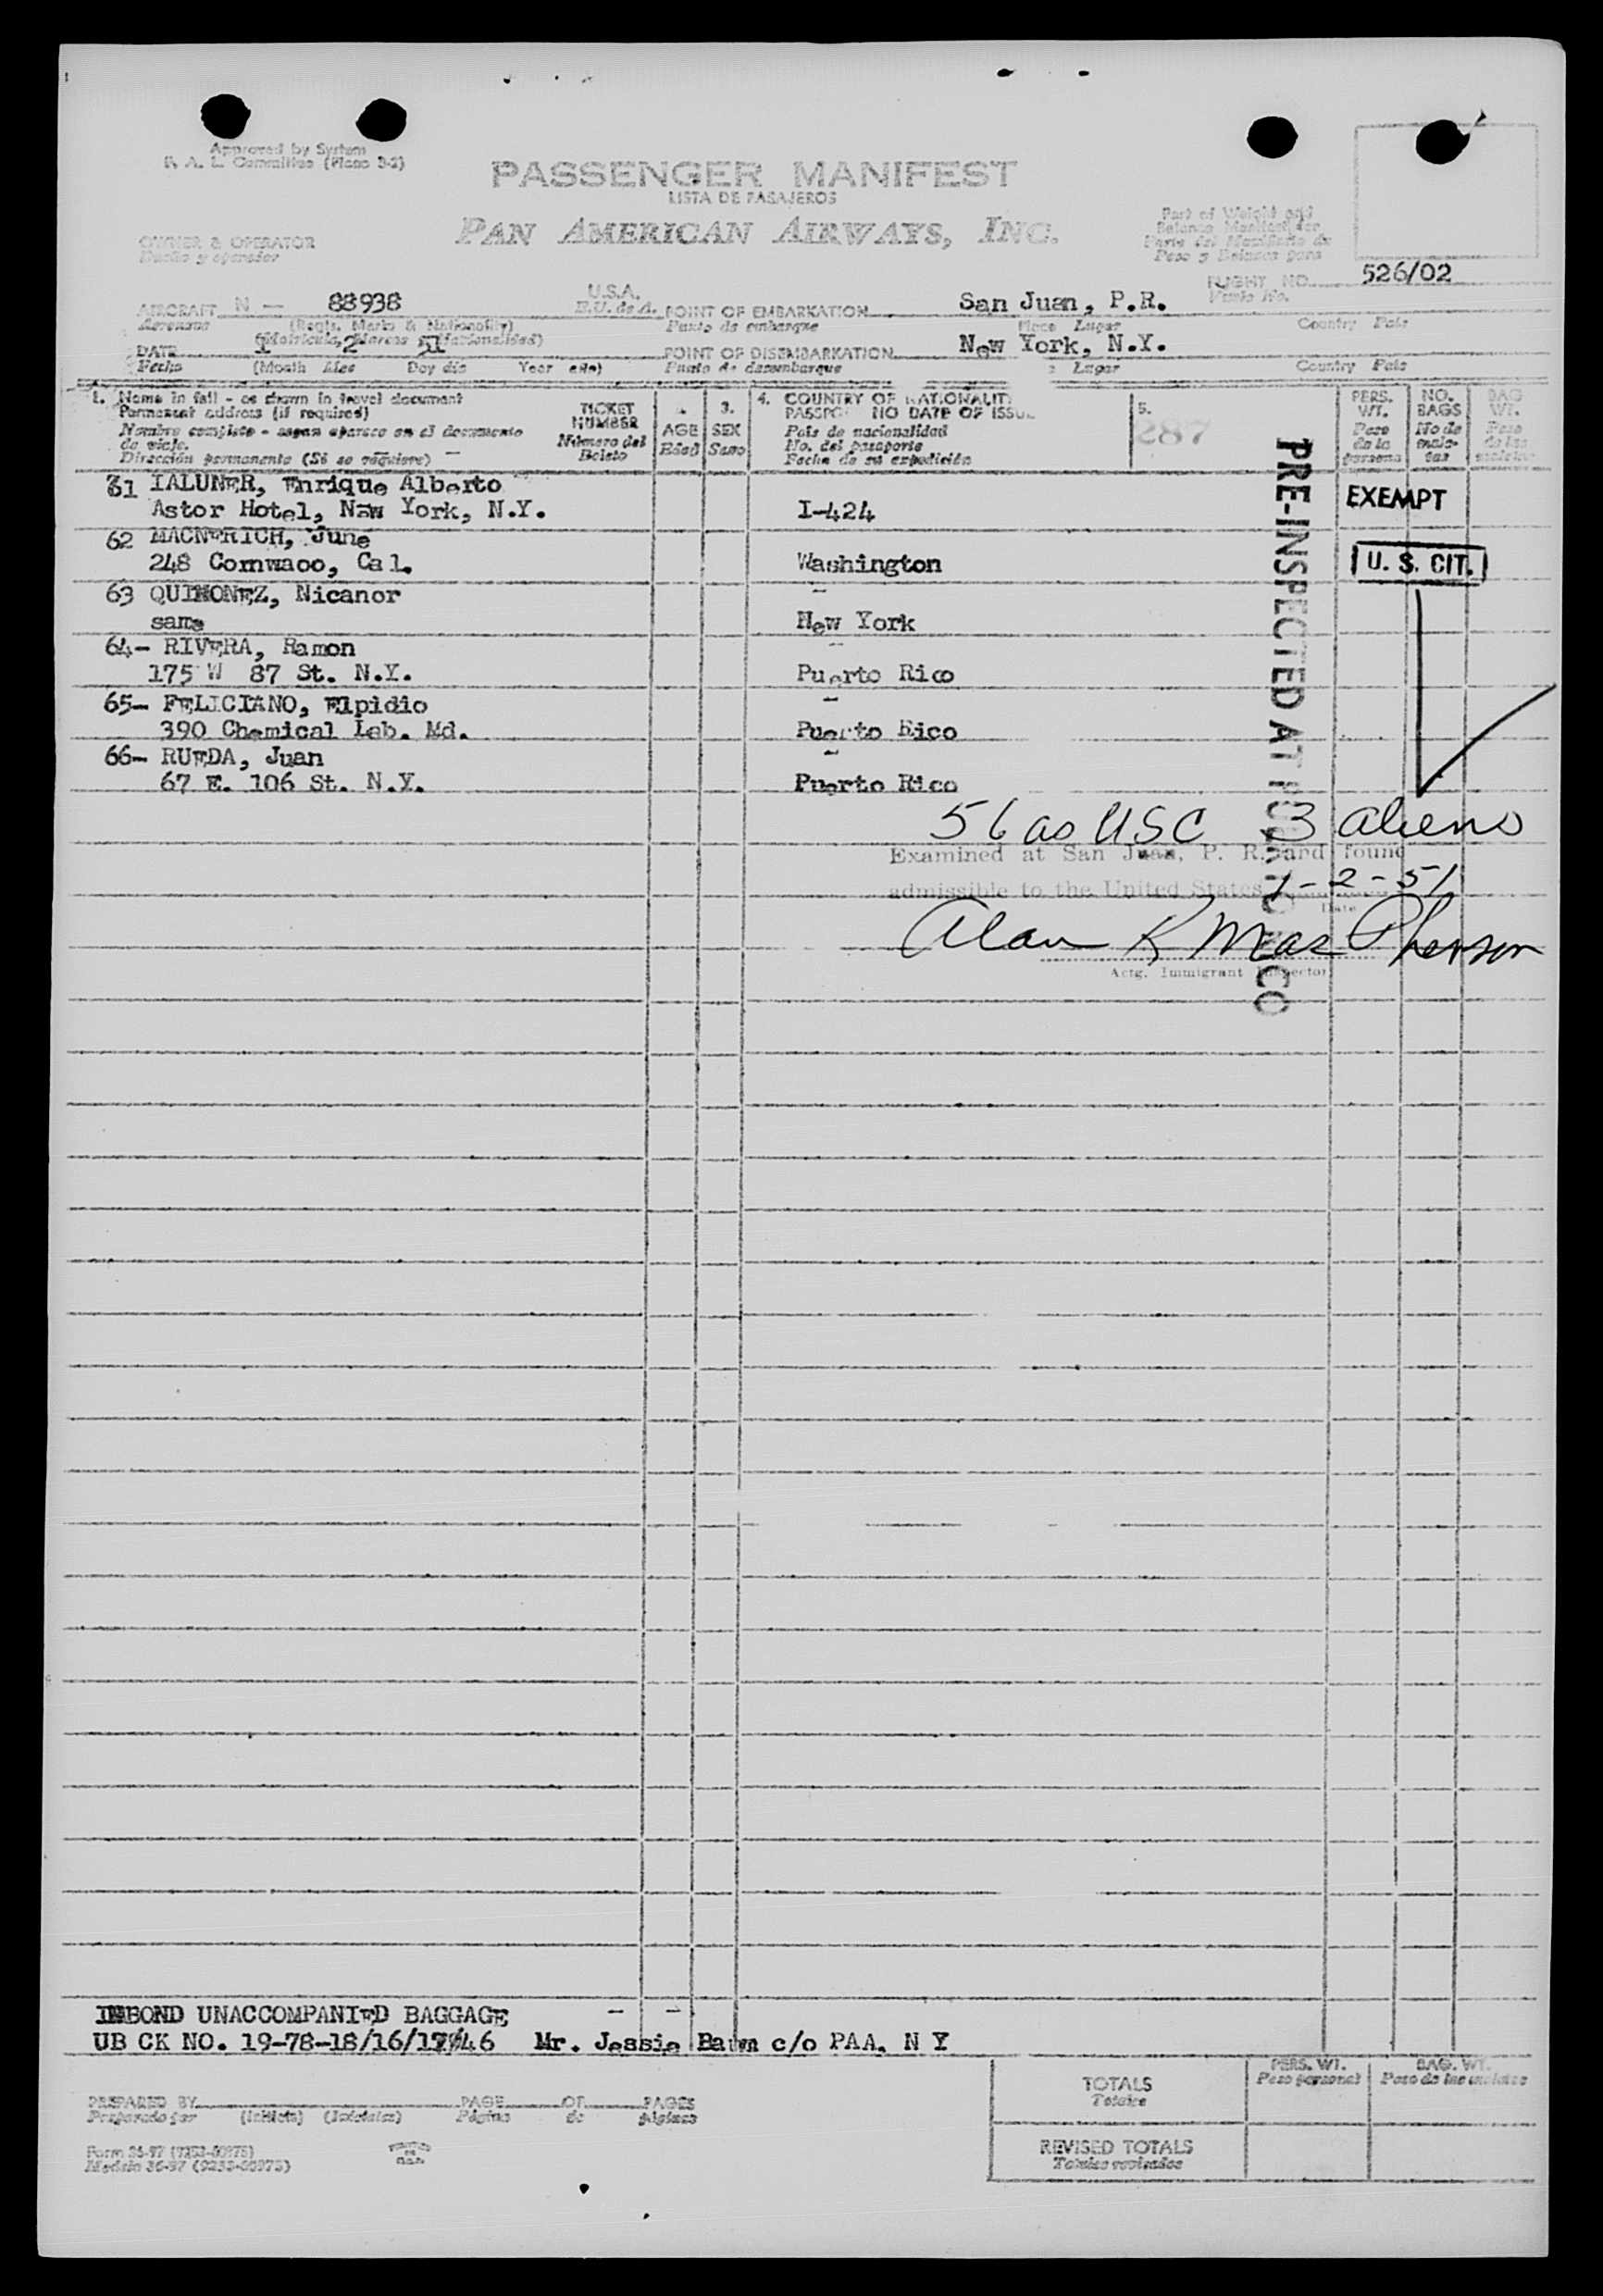 Approved by System
F. A. L. Committee (Piacc 3-2)
PASSENGER MANIFEST
LISTA DE PASAJEROS
PAN AMERICAN AIRWAYS, INC.
Part of Weight and
Balance Manifest for
Parte del Manifiesto de
Peso y Balance para
OWNER & OPERATOR
Dueño y operador
FLIGHT NO. 526/02
Vuelo No.
AIRCRAFT N - 88938 U.S.A.
Aeronave (Regis. Marks & Nationality) E.U. de A.
(Matricula, Marcas y Nacionalidad)
POINT OF EMBARKATION San Juan, P.R.
Punto de embarque Place Lugar Country Pais
DATE 1 2 51
Fecha (Month Mes Day dia Year año)
POINT OF DISEMBARKATION New York, N.Y.
Punto de desembarque Lugar Country Pais
1. Name in full - as shown in travel document
Permanent address (if required)
Nombre completo - segun aparece en el documento
de viaje.
Dirección permanente (Si se requiere)
TICKET
NUMBER
Número del
Boleto
AGE
Edad
3.
SEX
Sexo
4. COUNTRY OF NATIONALITY
PASSPO NO DATE OF ISSU
Pais de nacionalidad
No. del pasaporte
Fecha de su expedición
5.
287
PERS.
WT.
Peso
de la
persona
NO.
BAGS
No de
male-
tas
BAG
WT.
Peso
de las
maletas
PRE-INSPECTED AT PUERTO RICO
61 IALUNER, Enrique Alberto
Astor Hotel, New York, N.Y. I-424 EXEMPT
62 MACNERICH, June
248 Comwaoo, Cal. Washington U. S. CIT.
63 QUINONEZ, Nicanor
same New York
64- RIVERA, Ramon
175 W 87 St. N.Y. Puerto Rico
65- FELICIANO, Elpidio
390 Chemical Lab. Md. Puerto Rico
66- RUEDA, Juan
67 E. 106 St. N.Y. Puerto Rico
56 as USC 3 aliens
Examined at San Juan, P. R. and found
admissible to the United States 1-2-51
Date
Alan K MacPherson
Actg. Immigrant Inspector
INBOND UNACCOMPANIED BAGGAGE
UB CK NO. 19-78-18/16/17/46 Mr. Jessie Baum c/o PAA. N Y
TOTALS
Totales
PERS. WT.
Peso personal
BAG. WT.
Peso de las maletas
REVISED TOTALS
Totales revisados
PREPARED BY PAGE OF PAGES
Preparado por (Initials) (Iniciales) Página de páginas
Form 36-97 (9253-00975)
Modelo 36-97 (9253-00975)